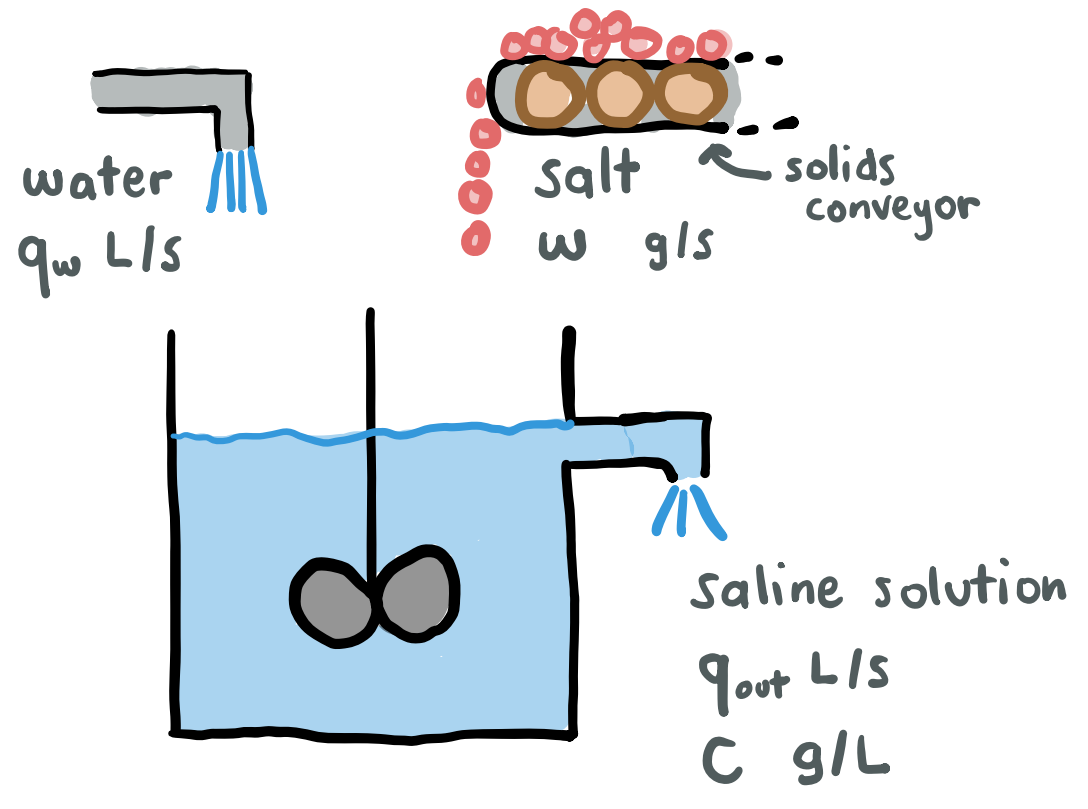 water
q_w L/s
salt
w g/s
solids
conveyor
saline solution
q_out L/s
C g/L